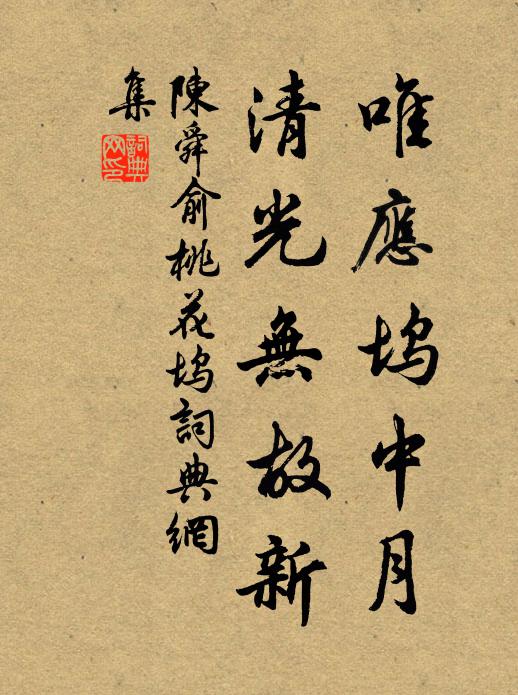 唯應塢中月
清光無故新
陳舜俞桃花塢詞典網
集
詞典
网印